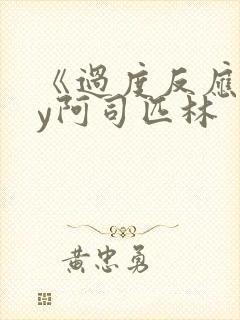 《過度反應
y阿司匹林
黄忠勇